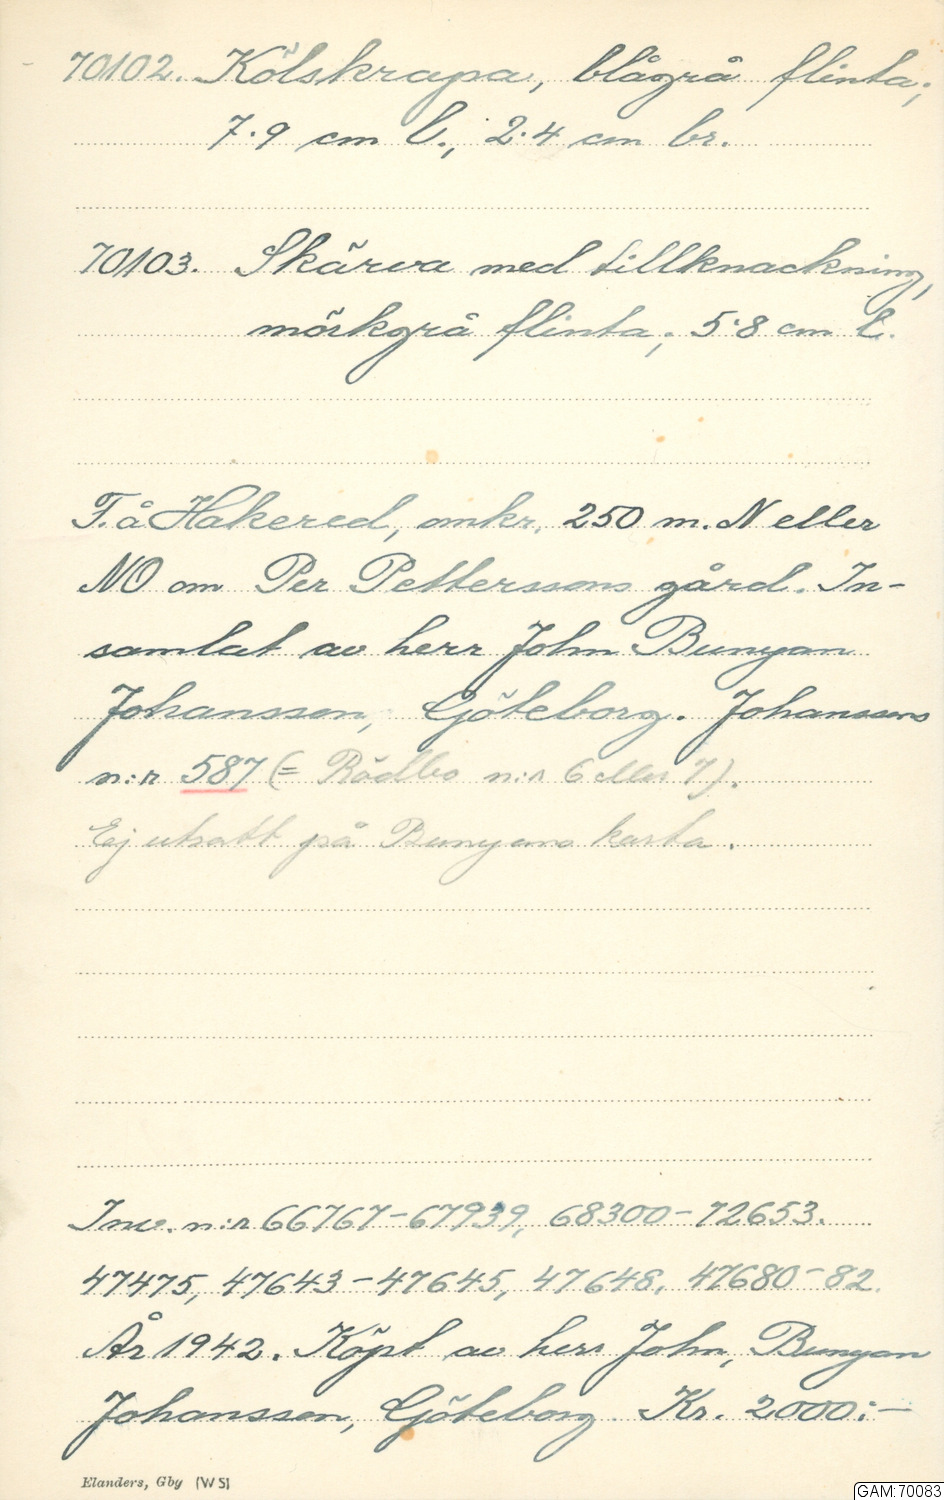 70102. Kölskrapa, blågrå flinta;
7.9 cm l., 2.4 cm br.
70103. Skärva med tillknackning,
mörkgrå flinta; 5.8 cm l.
F. å Hakered, omkr. 250 m. N eller
NO om Per Petterssons gård. In-
samlat av herr John Bunyan
Johansson, Göteborg. Johanssons
n:r 587 (= Rödbo n:r 6 eller 7).
Ej utsatt på Bunyans karta.
Inv. n:r 66767-67939, 68300-72653.
47475, 47643-47645, 47648, 47680-82.
År 1942. Köpt av herr John, Bunyan
Johansson, Göteborg. Kr. 2000:-
Elanders, Gby (W 5)
GAM:70083